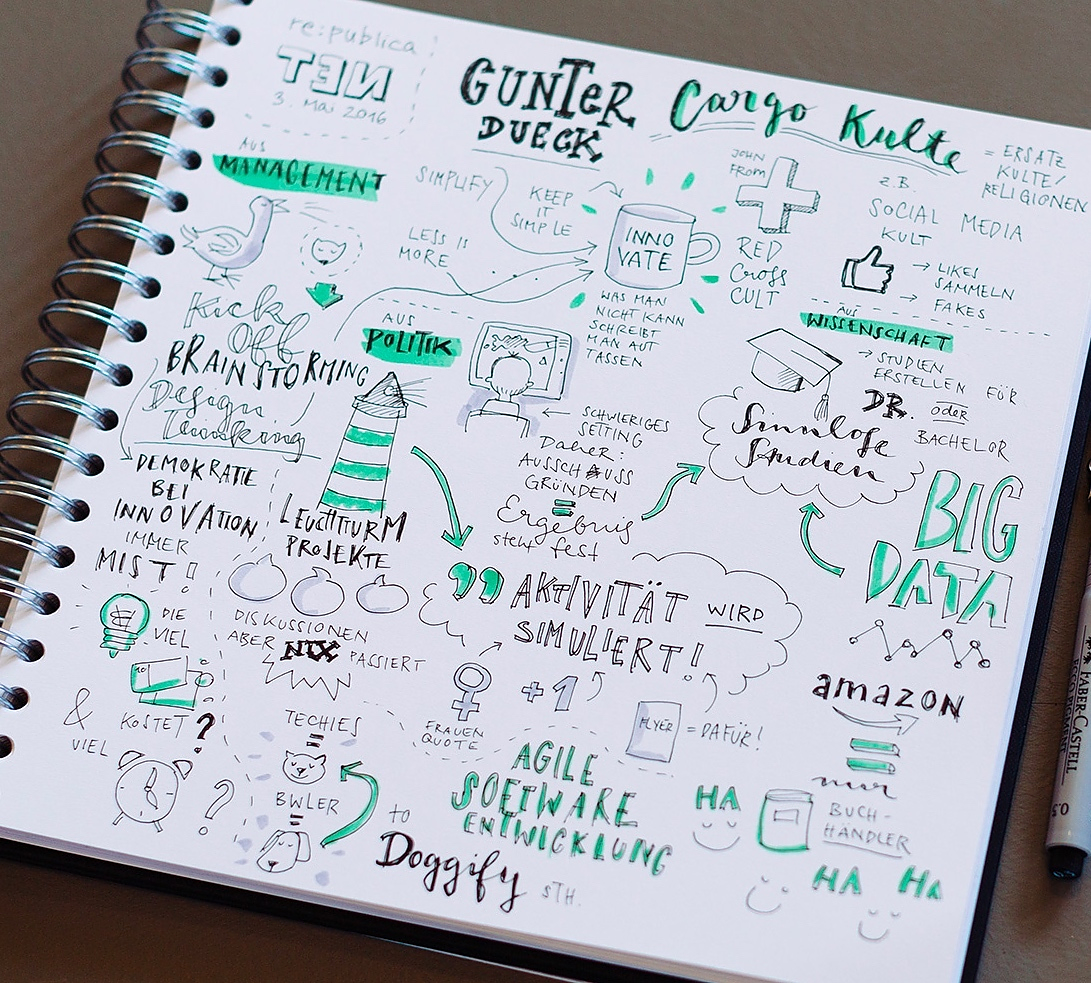 re:publica
TEN
3. Mai 2016
GUNTER
DUECK
Cargo Kulte
= ERSATZ
KULTE/
RELIGIONEN
AUS
MANAGEMENT
SIMPLIFY
KEEP
IT
SIMPLE
LESS IS
MORE
INNO
VATE
WAS MAN
NICHT KANN
SCHREIBT
MAN AUF
TASSEN
JOHN
FROM
RED
CROSS
CULT
z.B.
SOCIAL MEDIA
KULT
→ LIKES
SAMMELN
→ FAKES
Kick
Off
BRAINSTORMING
Design
Thinking
DEMOKRATIE
BEI
INNOVATION
IMMER
MIST!
DIE
VIEL
10
KOSTET ?
& VIEL
?
AUS
POLITIK
SCHWIERIGES
SETTING
Daher:
AUSSCHAUSS
GRÜNDEN
=
Ergebnis
steht fest
LEUCHTTURM
PROJEKTE
DISKUSSIONEN
ABER NIX PASSIERT
AUS
WISSENSCHAFT
→ STUDIEN
ERSTELLEN FÜR
DR. oder
BACHELOR
Sinnlose
Studien
BIG
DATA
„ AKTIVITÄT WIRD
SIMULIERT!
FRAUEN
QUOTE
+1
FLYER = DAFÜR!
TECHIES
=
BWLER
=
to
Doggify STH.
AGILE
SOFTWARE
ENTWICKLUNG
amazon
=
nur
BUCH-
HÄNDLER
HA
HA HA
FABER-CASTELL
0.5